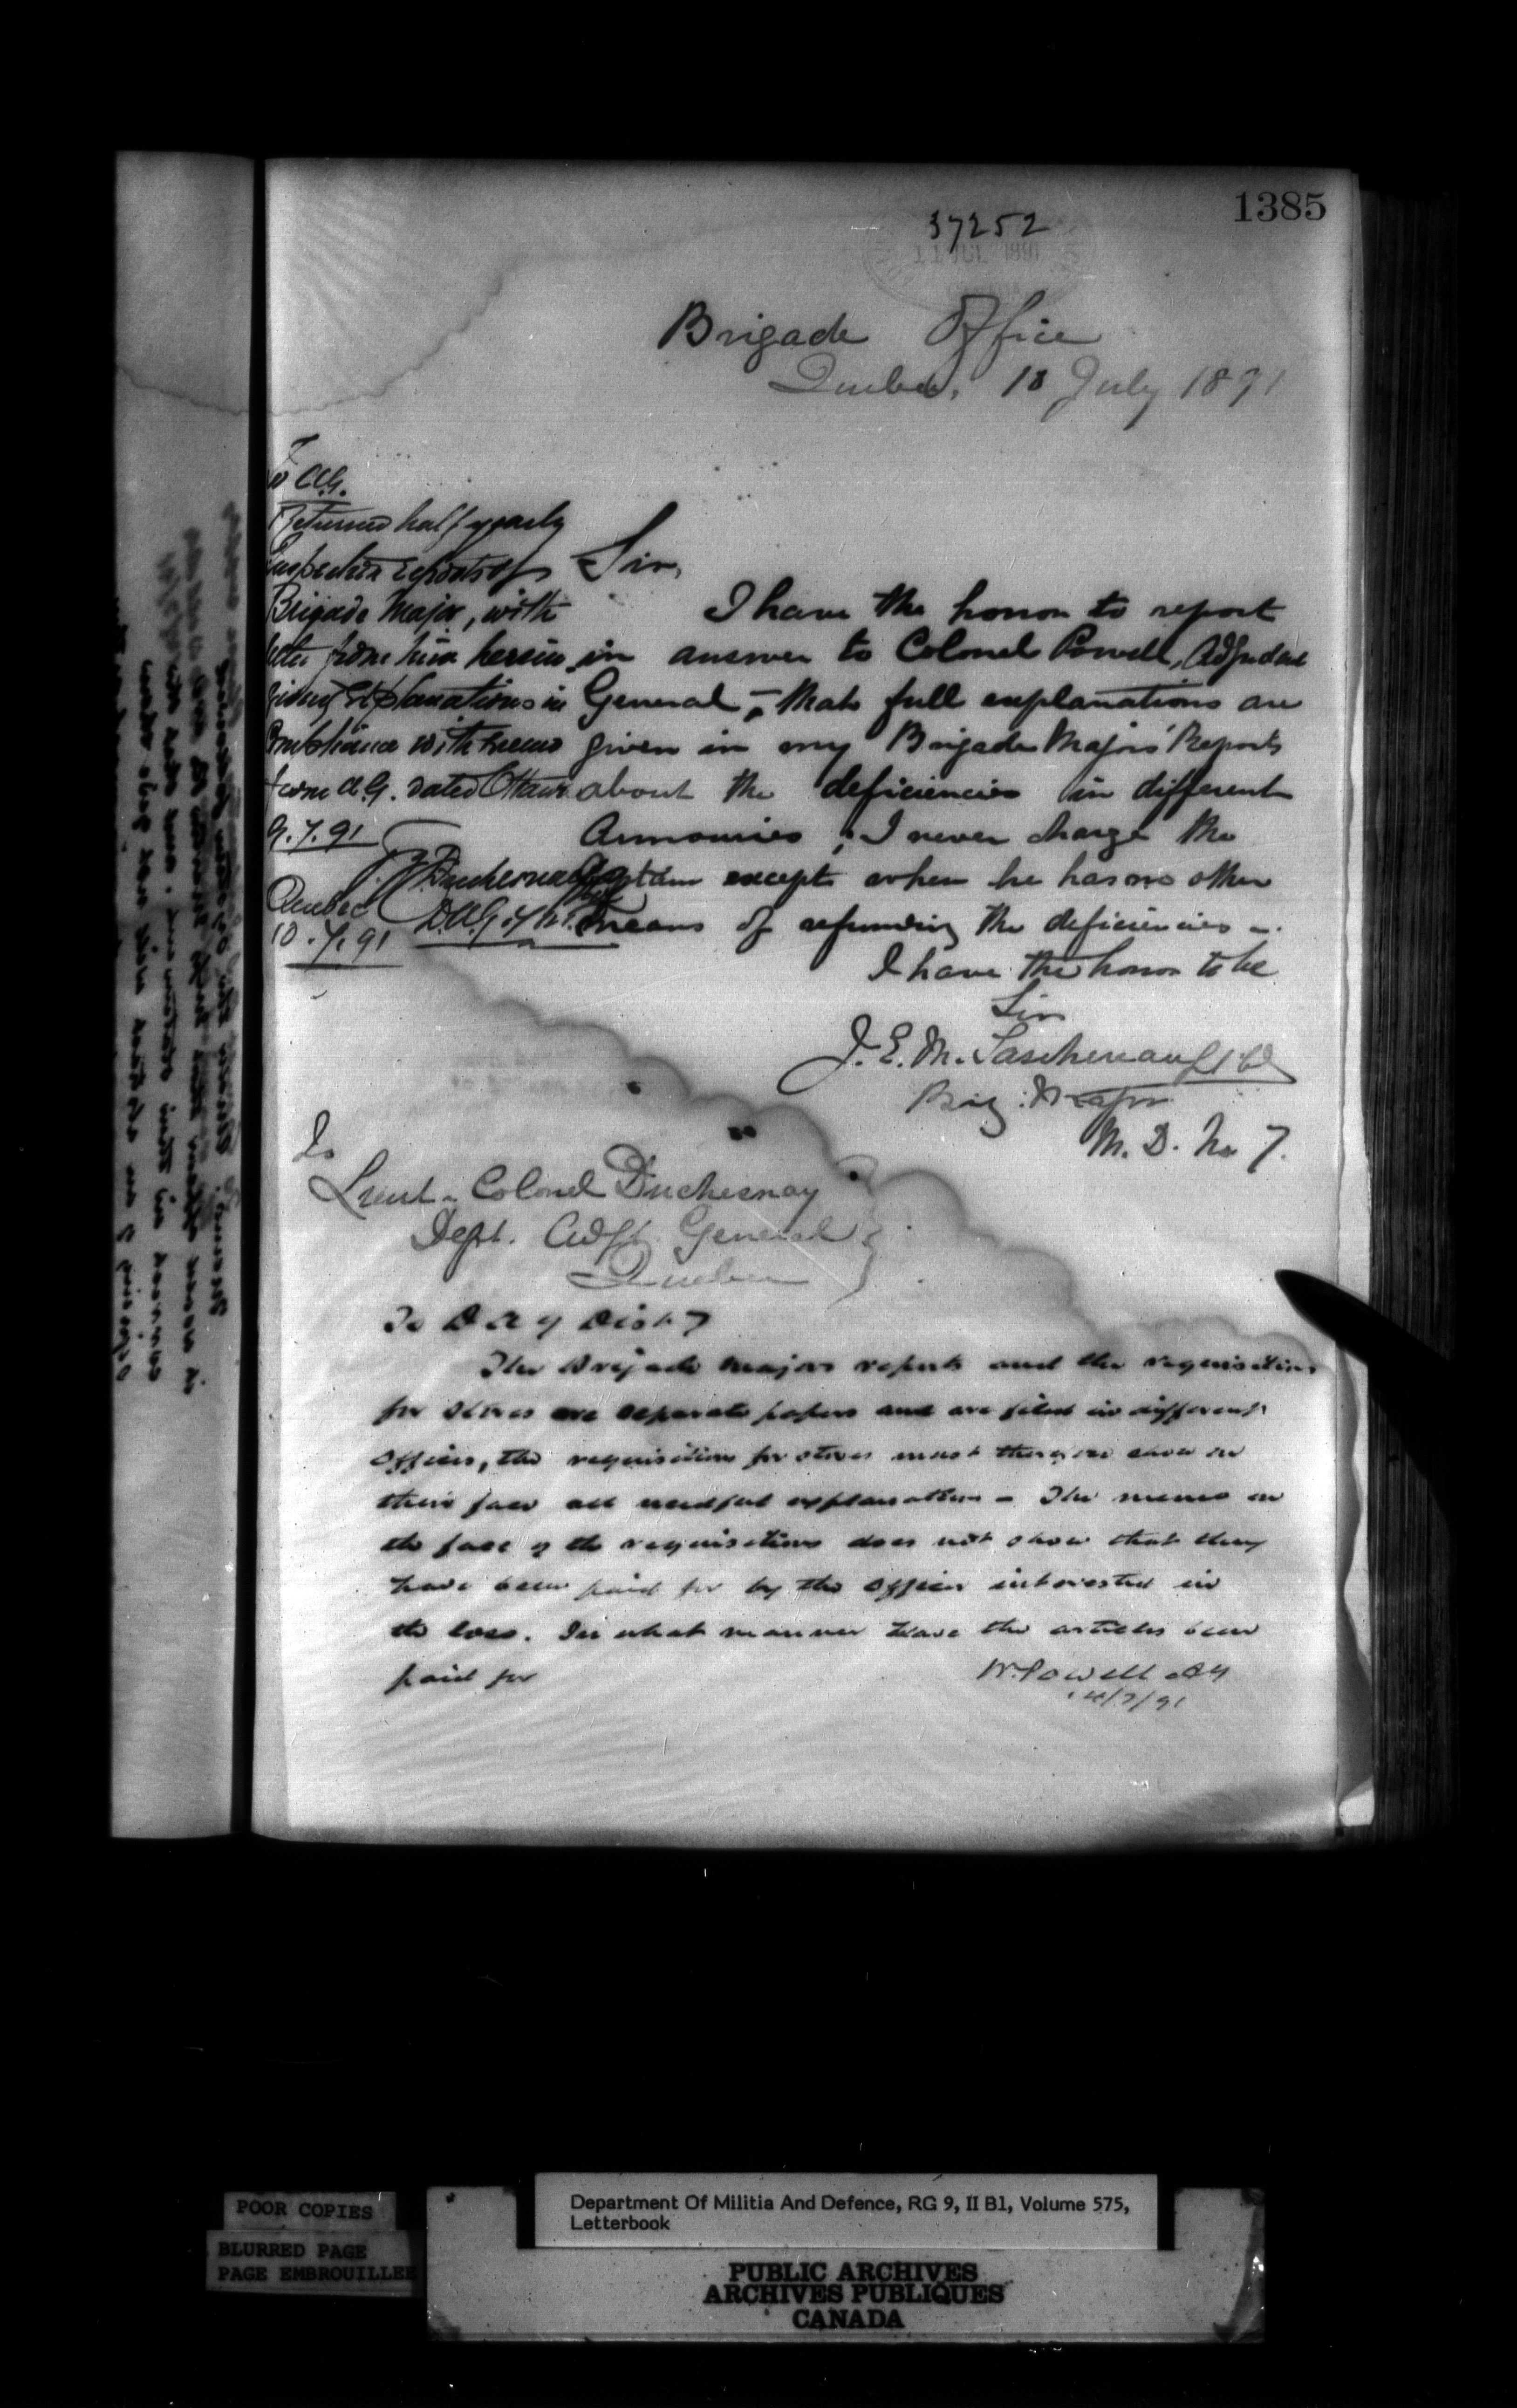 1385
37252
11 JUL 1891
Brigade Office
Quebec, 10 July 1891
To A.G.
Returned half yearly
Inspection reports of
Brigade Major, with
letter from him herein
giving Explanations in
Compliance with memo
from A.G. dated Ottawa
9.7.91
Duchesnay
D.A.G.
Quebec
10.7.91
Sir,
I have the honor to report
in answer to Colonel Powell, Adjudant
General, that full explanations are
given in my Brigade Majors' Reports
about the deficiencies in different
Armouries; I never charge the
Captain except when he has no other
means of refunding the deficiencies.
I have the honor to be
Sir
J. E. M. Taschereau Lt Col
Brig. Major
M. D. No 7.
To
Lieut-Colonel Duchesnay
Dept. Adjt. General
Quebec
To D A G Dist 7
The Brigade Majors reports and the requisitions
for stores are separate papers and are filed in different
offices, the requisitions for stores must therefore show on
their face all needful explanation - The memo on
the face of the requisitions does not show that they
have been paid for by the officer interested in
the loss. In what manner have the articles been
paid for
W. Powell AG
14/7/91
POOR COPIES
BLURRED PAGE
PAGE EMBROUILLEE
Department Of Militia And Defence, RG 9, II B1, Volume 575,
Letterbook
PUBLIC ARCHIVES
ARCHIVES PUBLIQUES
CANADA